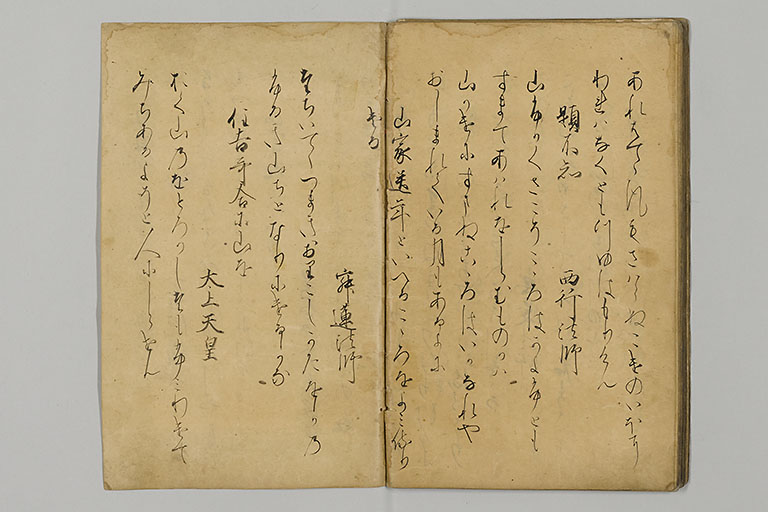 あれはてゝ風もさはらぬこけのいほに
われはなくともつゆはもりけん
題不知　西行法師
山ふかくさこそこゝろはかよふとも
すまてあはれをしらむものかは
山かけにすまぬこゝろはいかなれや
おしまれている月もあるよに
山家送年といへるこゝろをよみ侍り
ける
寂蓮法師
たちいてゝつまきおりこしかたをかの
ふかき山ちとなりにけるかな
住吉哥合に山を
太上天皇
おく山のをとろかしたもふみわけて
みちあるよそと人にしらせん